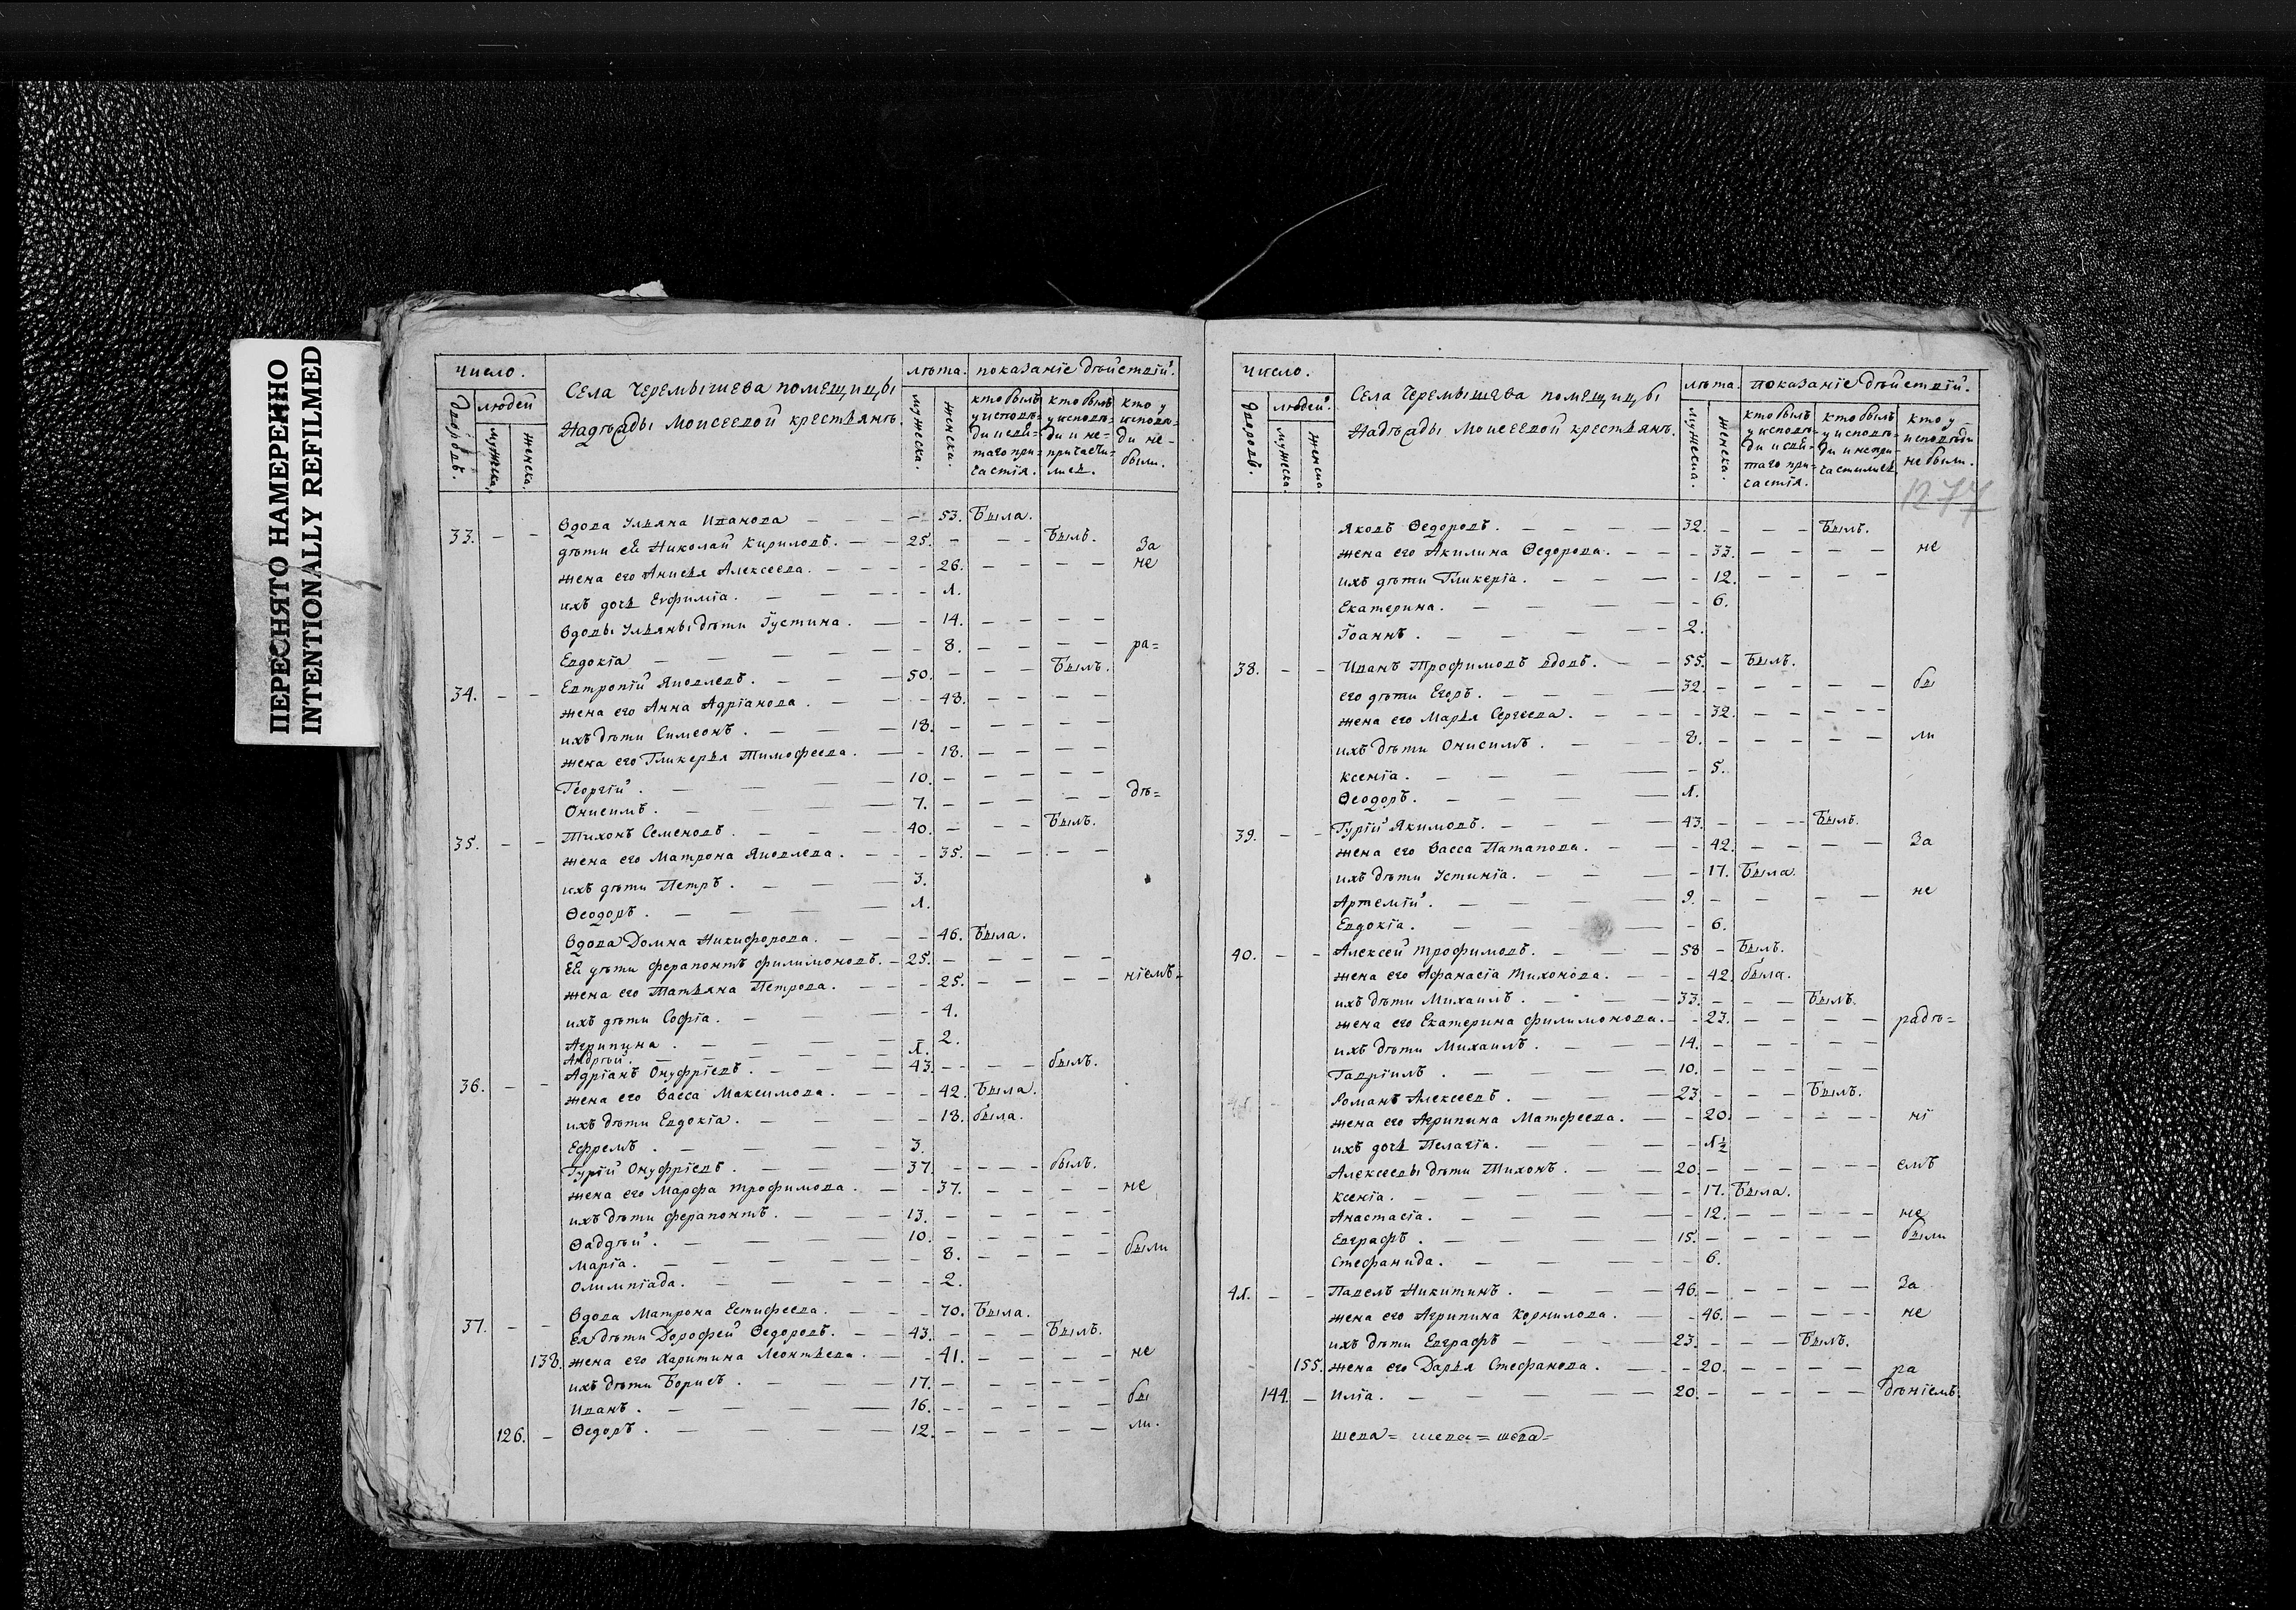 ПЕРЕСНЯТО НАМЕРЕННО
INTENTIONALLY REFILMED
число.
дворовъ.
людей
мужеска,
женска,
Села Черемышева помещицы
Надѣжды Моисеевой крестьянъ.
лѣта.
мужеска.
женска.
показаніе дѣйствій.
кто былъ
у исповѣ=
ди и свя=
таго при=
частія.
кто былъ
у исповѣ=
ди и не=
причасти=
лися.
кто у
исповѣ=
ди не=
были.
Вдова Ульяна Иванова — — — 53. Была.
33. — — дѣти ей Николай Кириловъ. — — 25. — — — Былъ. За
жена его Анисья Алексеева. — — — 26. — — — — не
ихъ дочь Евфимія. — — — 1.
Вдовы Ульяны дѣти Густина. — — 14. — — — —
Евдокія — — — — 8. — — — — ра=
34. — — Евтропій Яковлевъ. — — — 50. — — — Былъ.
жена его Анна Адріанова. — — — 48. — — — —
ихъ дѣти Симеонъ. — — — 18. — — — — —
жена его Гликерья Тимофеева. — — 18. — — — —
Георгій. — — — — 10. — — — — —
Онисимъ. — — — — 7. — — — — — дѣ=
35. — — Тихонъ Семеновъ. — — — 40. — — — Былъ.
жена его Матрона Яковлева. — — — 35. — — — —
ихъ дѣти Петръ. — — — 3.
Ѳеодоръ. — — — — 1.
Вдова Домна Никифорова. — — — 46. Была.
Ей дѣти Ферапонтъ Филимоновъ. — 25. — — — — —
жена его Татьяна Петрова. — — — 25. — — — — ніемъ=
ихъ дѣти Софія. — — — 4.
Агрипина. — — — — 2.
Андрей. — — — — 1.
36. — — Адріанъ Онуфріевъ. — — — 43. — — — былъ.
жена его Васса Максимова. — — — 42. Была.
ихъ дѣти Евдокія. — — — — 18. была.
Ефремъ. — — — — 3.
Гурій Онуфріевъ. — — — 37. — — — былъ.
жена его Марфа Трофимова. — — 37. — — — — не
ихъ дѣти Ферапонтъ. — — — 13. — — — — —
Фаддѣй. — — — — 10. — — — — —
Марія. — — — — 8. — — — — были
Олимпіада. — — — — 2.
Вдова Матрона Естифеева. — — — 70. Была.
37. — — Ея дѣти Дорофей Ѳедоровъ. — — 43. — — — Былъ.
138. жена его Харитина Леонтьева. — — 41. — — — — не
ихъ дѣти Борисъ. — — — 17. — — — — —
Иванъ. — — — — 16. — — — — — бы
126. — Ѳедоръ. — — — — 12. — — — — — ли.
число.
дворовъ.
людей.
мужеска.
женска.
Села Черемышева помещицы
Надѣжды Моисеевой крестьянъ.
лѣта.
мужеска.
женска.
показаніе дѣйствій.
кто былъ
у исповѣ=
ди и свя=
таго при=
частія.
кто былъ
у исповѣ=
ди и непри=
частился
кто у
исповѣди
не были.
1277
Яковъ Ѳедоровъ. — — — — 32. — — — Былъ.
жена его Акилина Ѳедорова. — — — 33. — — — — не
ихъ дѣти Гликерія. — — — — 12. — — — —
Екатерина. — — — — 6.
Іоаннъ. — — — — 2.
38. — — Иванъ Трофимовъ вдовъ. — — 55. — Былъ.
его дѣти Егоръ. — — — 32. — — — — — бы
жена его Марья Сергеева. — — — 32. — — — —
ихъ дѣти Онисимъ. — — — 8. — — — — — ли
Ксенія. — — — — 5.
Ѳеодоръ. — — — — 1.
39. — — Гурій Якимовъ. — — — — 43. — — — Былъ.
жена его Васса Патапова. — — — 42. — — — — За
ихъ дѣти Устинія. — — — — 17. Была.
Артемій. — — — — 9. — — — — — не
Евдокія. — — — — 6.
40. — — Алексей Трофимовъ. — — — 58 — Былъ.
жена его Афанасія Тихонова. — — 42. была.
ихъ дѣти Михаилъ. — — — 33. — — — Былъ.
жена его Екатерина Филимонова. — — 23. — — — — радѣ=
ихъ дѣти Михаилъ. — — — 14. — — — — —
Гавріилъ. — — — — 10. — — — — —
Романъ Алексеевъ. — — — 23 — — — Былъ.
жена его Агрипина Матфеева. — — 20. — — — — ні
ихъ дочь Пелагія. — — — — 1½
Алексеевы дѣти Тихонъ. — — 20. — — — — — емъ
Ксенія. — — — — — 17. Была.
Анастасія. — — — — 12. — — — — не
Евграфъ. — — — — 15. — — — — — были
Стефанида. — — — — 6.
41. — — Павелъ Никитинъ. — — — 46. — — — — — За
жена его Агрипина Корнилова. — — 46. — — — — не
ихъ дѣти Евграфъ — — — 23. — — — Былъ.
155. жена его Дарья Стефанова. — — 20. — — — — ра
144. — Илія. — — — — 20. — — — — — дѣніемъ.
шева= шева= шева=